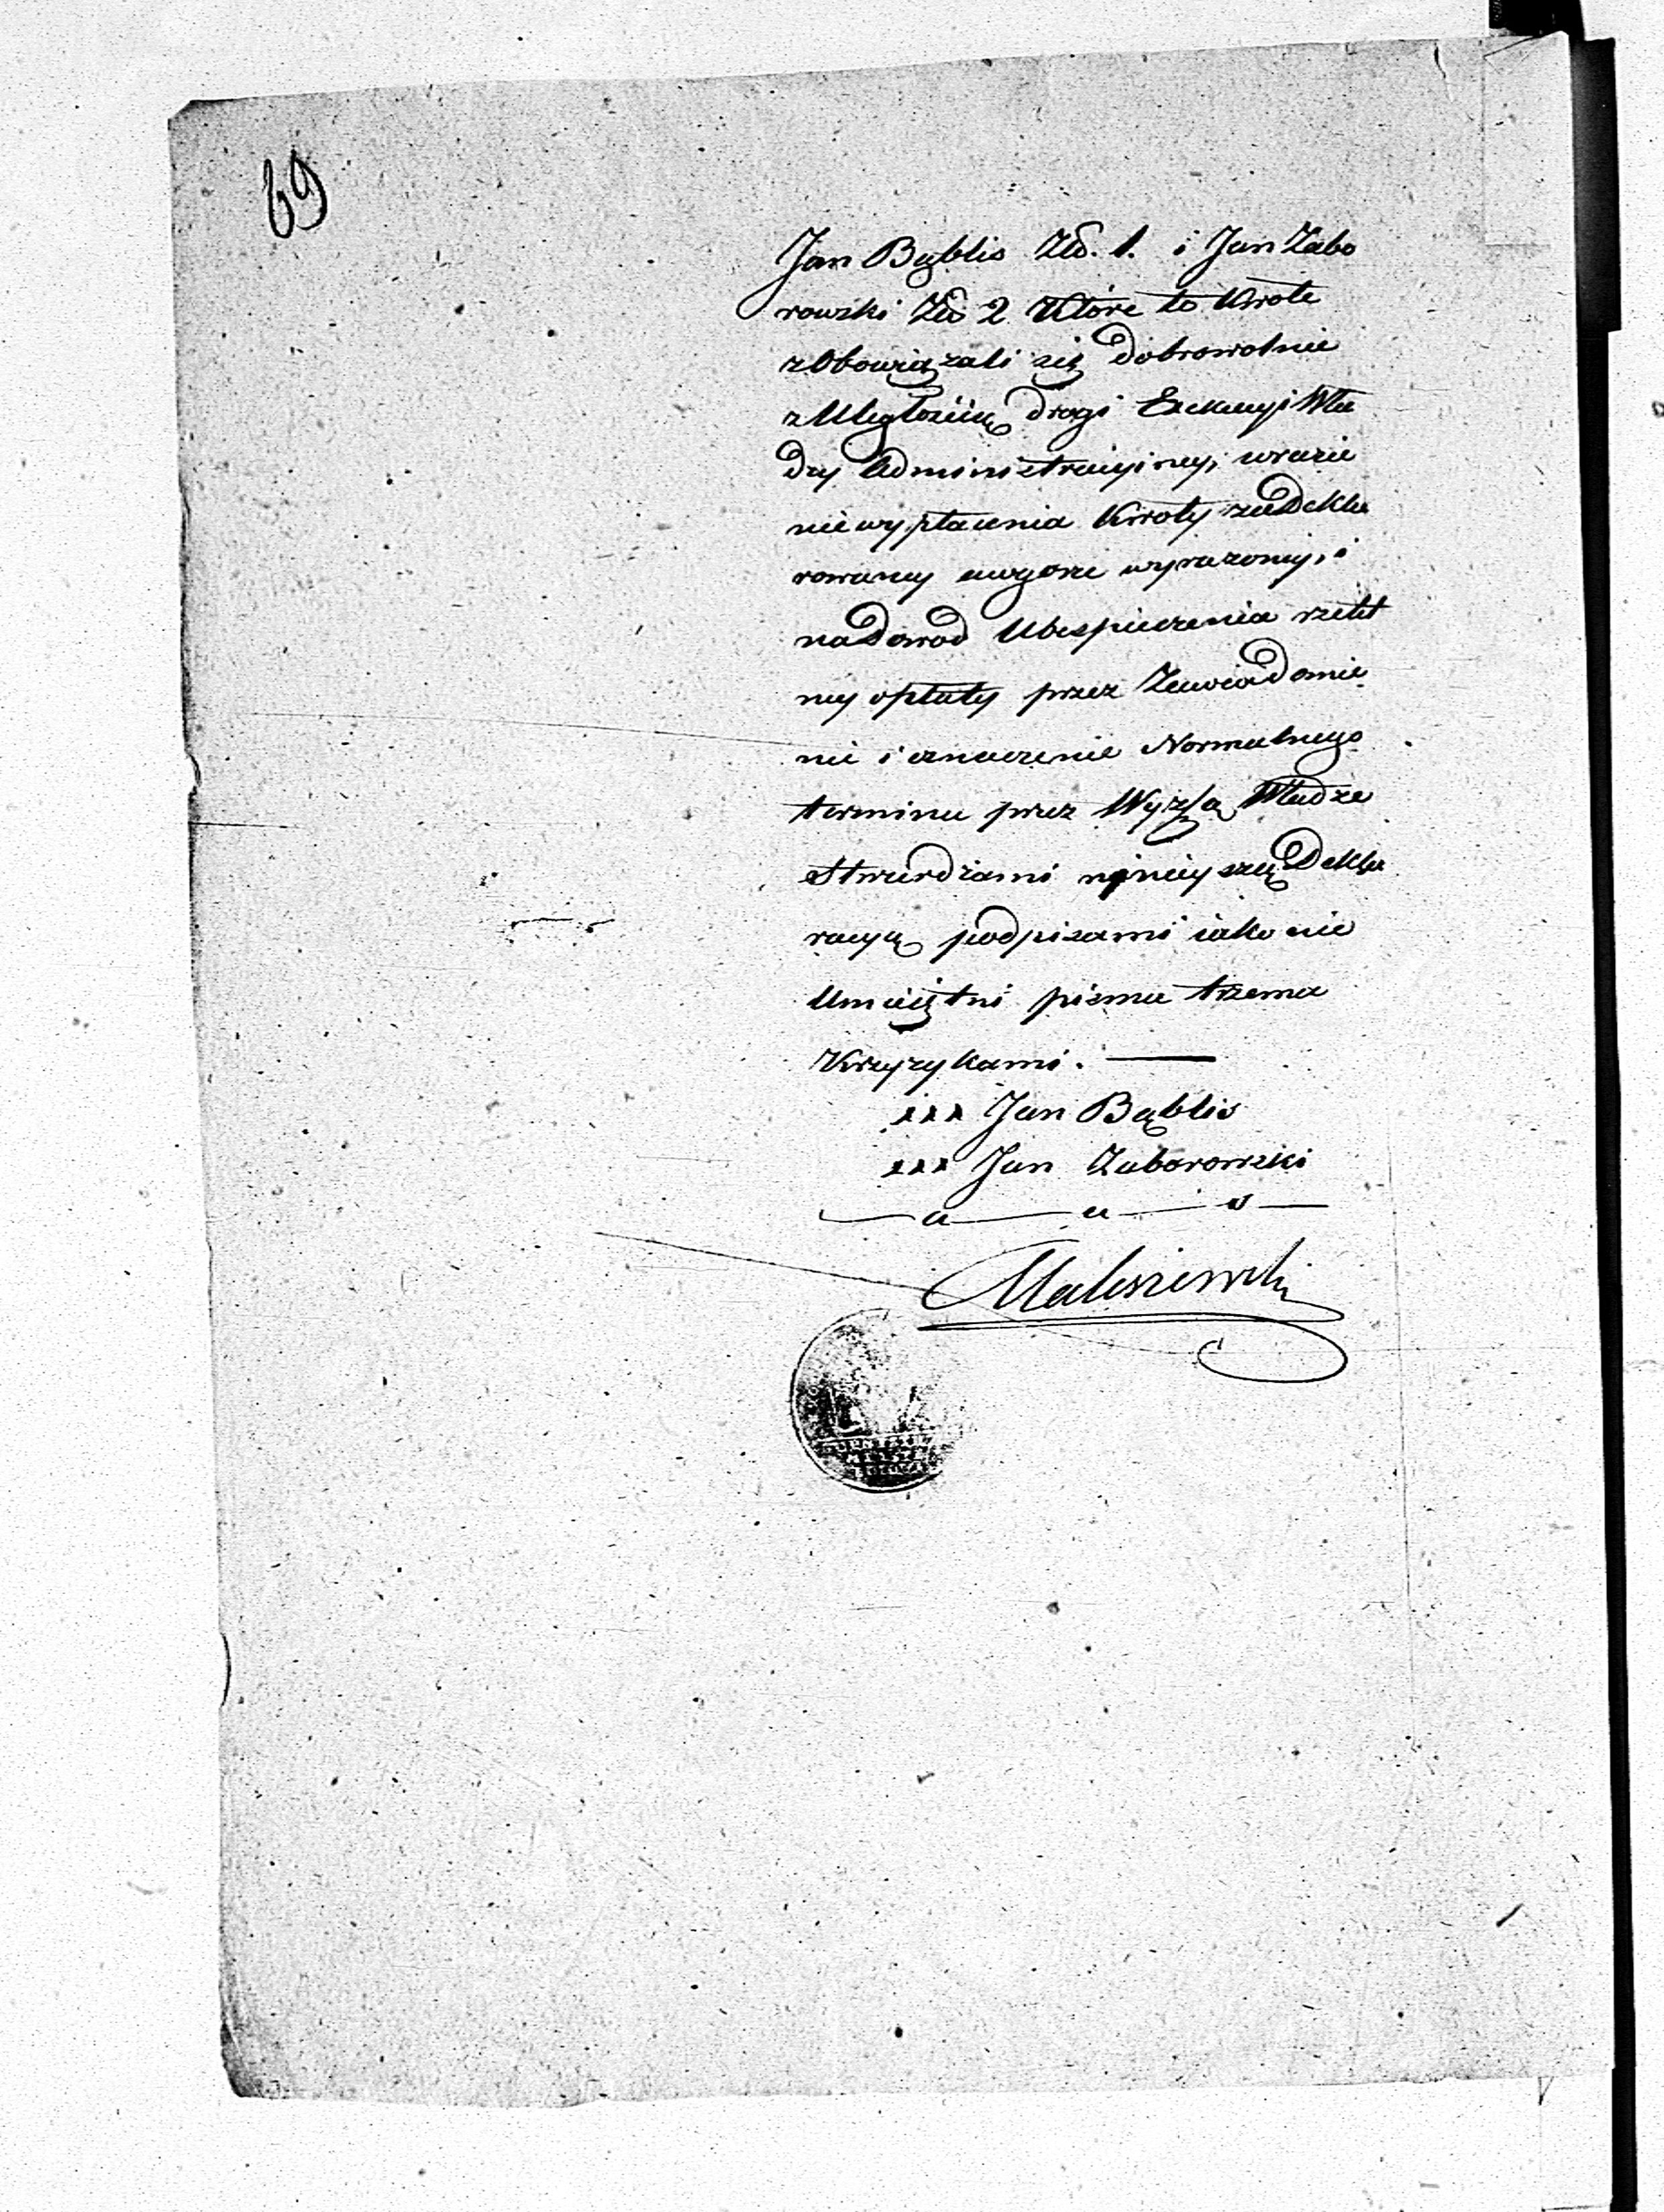 69
Jan Bąblis Zło. 1. i Jan Zabo
rowski Zło 2 Które to Kwote
zObowiązali się dobrowolnie
z Uległością drogi Exekucyi Wła
dzy Administracyiney, wrazie
niewypłacenia Kwoty zaDekla
rowaney wwgorze wyrazoney, i
naDowod Ubespieczenia rzetel
ney opłaty przez Zawiadomie
nie i oznaczenie Normalnego
terminu przez Wyzszą Władze
stwierdzami ninieyszą Dekla
racyą podpisami iako nie
Umieiętni pisma trzema
Krzyzykami. —
xxx Jan Bąblis
xxx Jan Zaborowski
Maliszewski